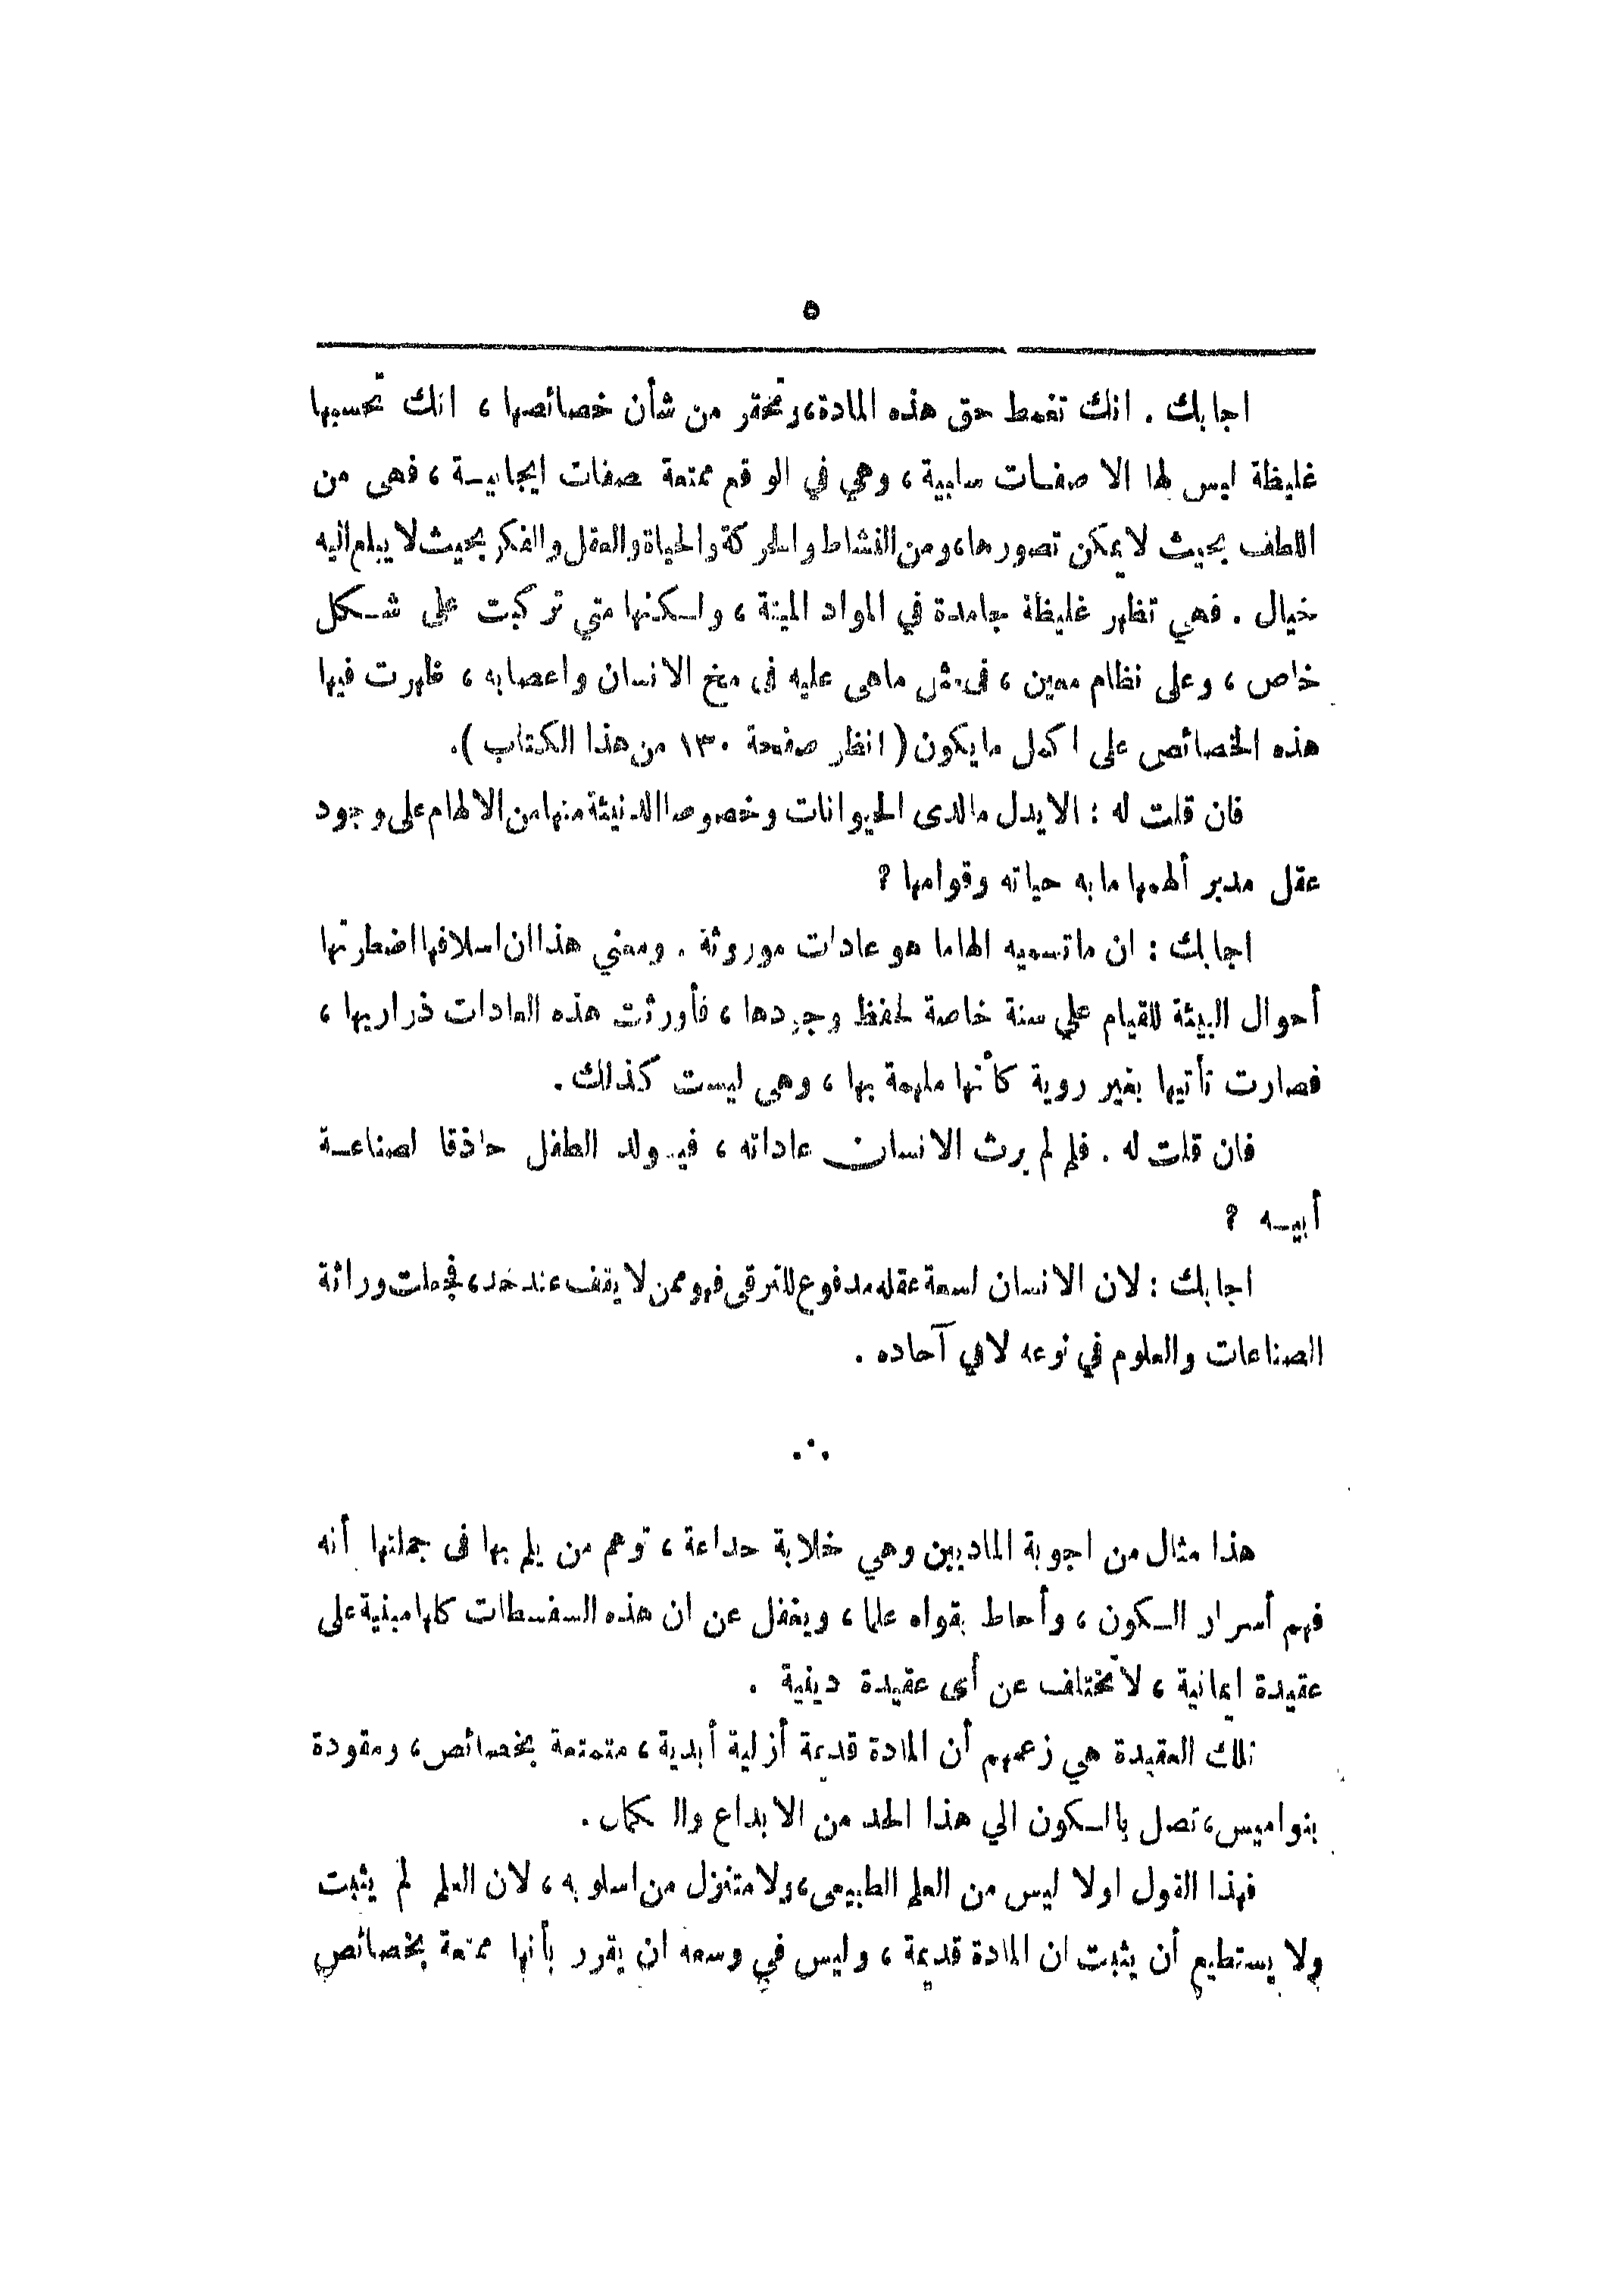 ٥
اجابك . انك تغمط حق هذه المادة، وتحقر من شأن خصائصها ، انك تحسبها
غليظة ليس لها الا صفات سلبية ، وهي في الواقع ممتعة بصفات ايجابية ، فهى من
اللطف بحيث لا يمكن تصورها، ومن النشاط والحركة والحياة والعقل والفكر بحيث لا يبلغ اليه
خيال . فهي تظهر غليظة جامدة في المواد الميتة ، ولكنها متي تركبت على شكل
خاص ، وعلى نظام معين ، فى مثل ماهى عليه فى مخ الانسان واعصابه ، ظهرت فيها
هذه الخصائص على اكمل مايكون ( انظر صفحة ١٣٠ من هذا الكتاب ).
فان قلت له : الايدل مالدى الحيوانات وخصوصا الدنيئة منها من الالهام على وجود
عقل مدبر ألهمها مابه حياته وقوامها ؟
اجابك : ان ماتسميه الهاما هو عادات موروثة . ومعني هذا ان اسلافها اضطرتها
أحوال البيئة للقيام علي سنة خاصة لحفظ وجودها ، فأورثت هذه العادات ذراريها ،
فصارت تأتيها بغير روية كأنها ملهمة بها ، وهى ليست كذلك .
فان قلت له . فلم لم يرث الانسان عاداته ، فيولد الطفل حاذقا لصناعة
أبيه ؟
اجابك : لان الانسان لسعة عقله مدفوع للترقى فهو ممن لا يقف عند حد، فجعلت وراثة
الصناعات والعلوم في نوعه لافي آحاده .
∴
هذا مثال من اجوبة الماديين وهي خلابة خداعة ، توهم من يلم بها فى جملتها أنه
فهم أسرار الكون ، وأحاط بقواه علما ، ويغفل عن ان هذه السفسطات كلها مبنية على
عقيدة ايمانية ، لا تختلف عن أى عقيدة دينية .
تلك العقيدة هي زعمهم أن المادة قديمة أزلية أبدية ، متمتعة بخصائص ، ومقودة
بنواميس، تصل بالكون الي هذا الحد من الابداع والكمال .
فهذا القول اولا ليس من العلم الطبيعى، ولا متنزل من اسلوبه ، لان العلم لم يثبت
ولا يستطيع أن يثبت ان المادة قديمة ، وليس في وسعه ان يقرر بأنها ممتعة بخصائص